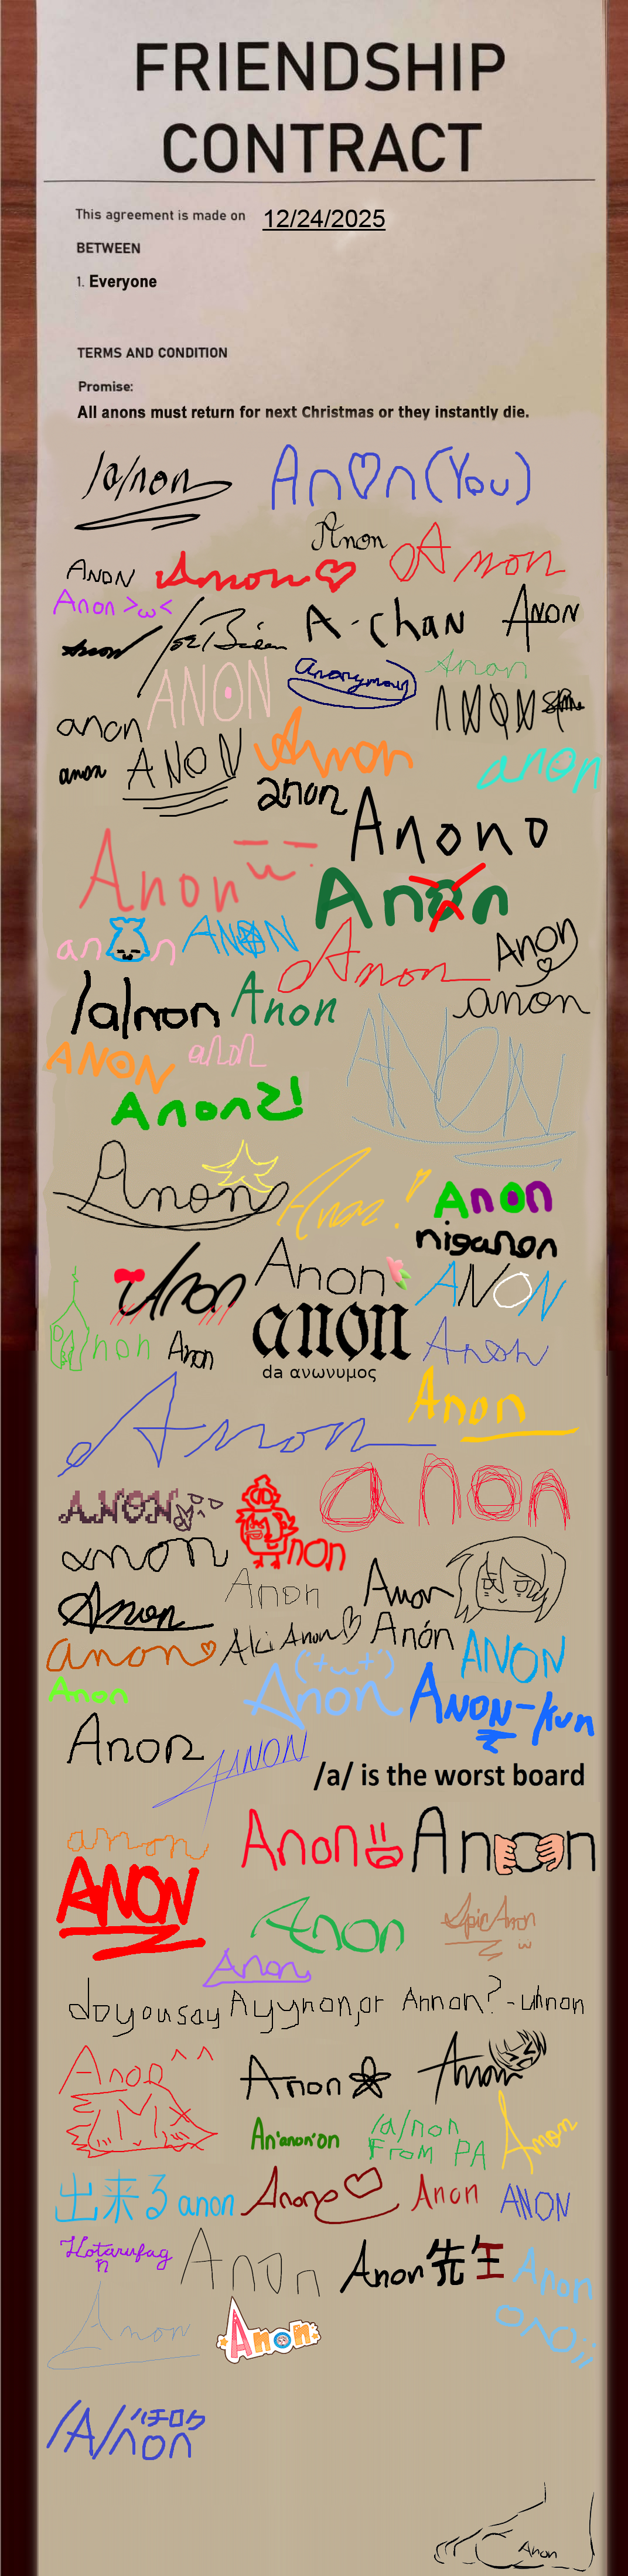 FRIENDSHIP
CONTRACT
This agreement is made on 12/24/2025
BETWEEN
1. Everyone
TERMS AND CONDITION
Promise:
All anons must return for next Christmas or they instantly die.
/a/non
An♡n (You)
Anon
Anon
ANON
Anon ♡
Anon >ω<
Anon
Joe Biden
A-chan
ANON
ANON
Anonymous
Anon
anon
ANON
anon
ANON
Anon
anon
anon
Anono
Anon
Anon
an n
ANON
Anon
Anon
/a/non
Anon
anon
ANON
anon
ANON
Anon2!
Anon
Anon
niganon
Anon
Anon
ANON
non
Anon
anon
da ανωνυμος
Anon
Anon
Anon
ANON
non
anon
anon
Anon
Anon
Anon
anon ♡
Aki Anon ♡
Anón
ANON
Anon
Anon
ANON-kun
Anon
ANON
/a/ is the worst board
anon
Anon
Anon
ANON
Anon
Epic Anon
Anon
do you say Ayynon, or Annon? -
Anon ^^
Anon
Anon
An'anon'on
/a/non
FROM PA
Anon
出来る anon
Anon ♡
Anon
ANON
Hotarufag
Anon
Anon先生
Anon
Anon
Anon
/A/non
ハチロク
Anon